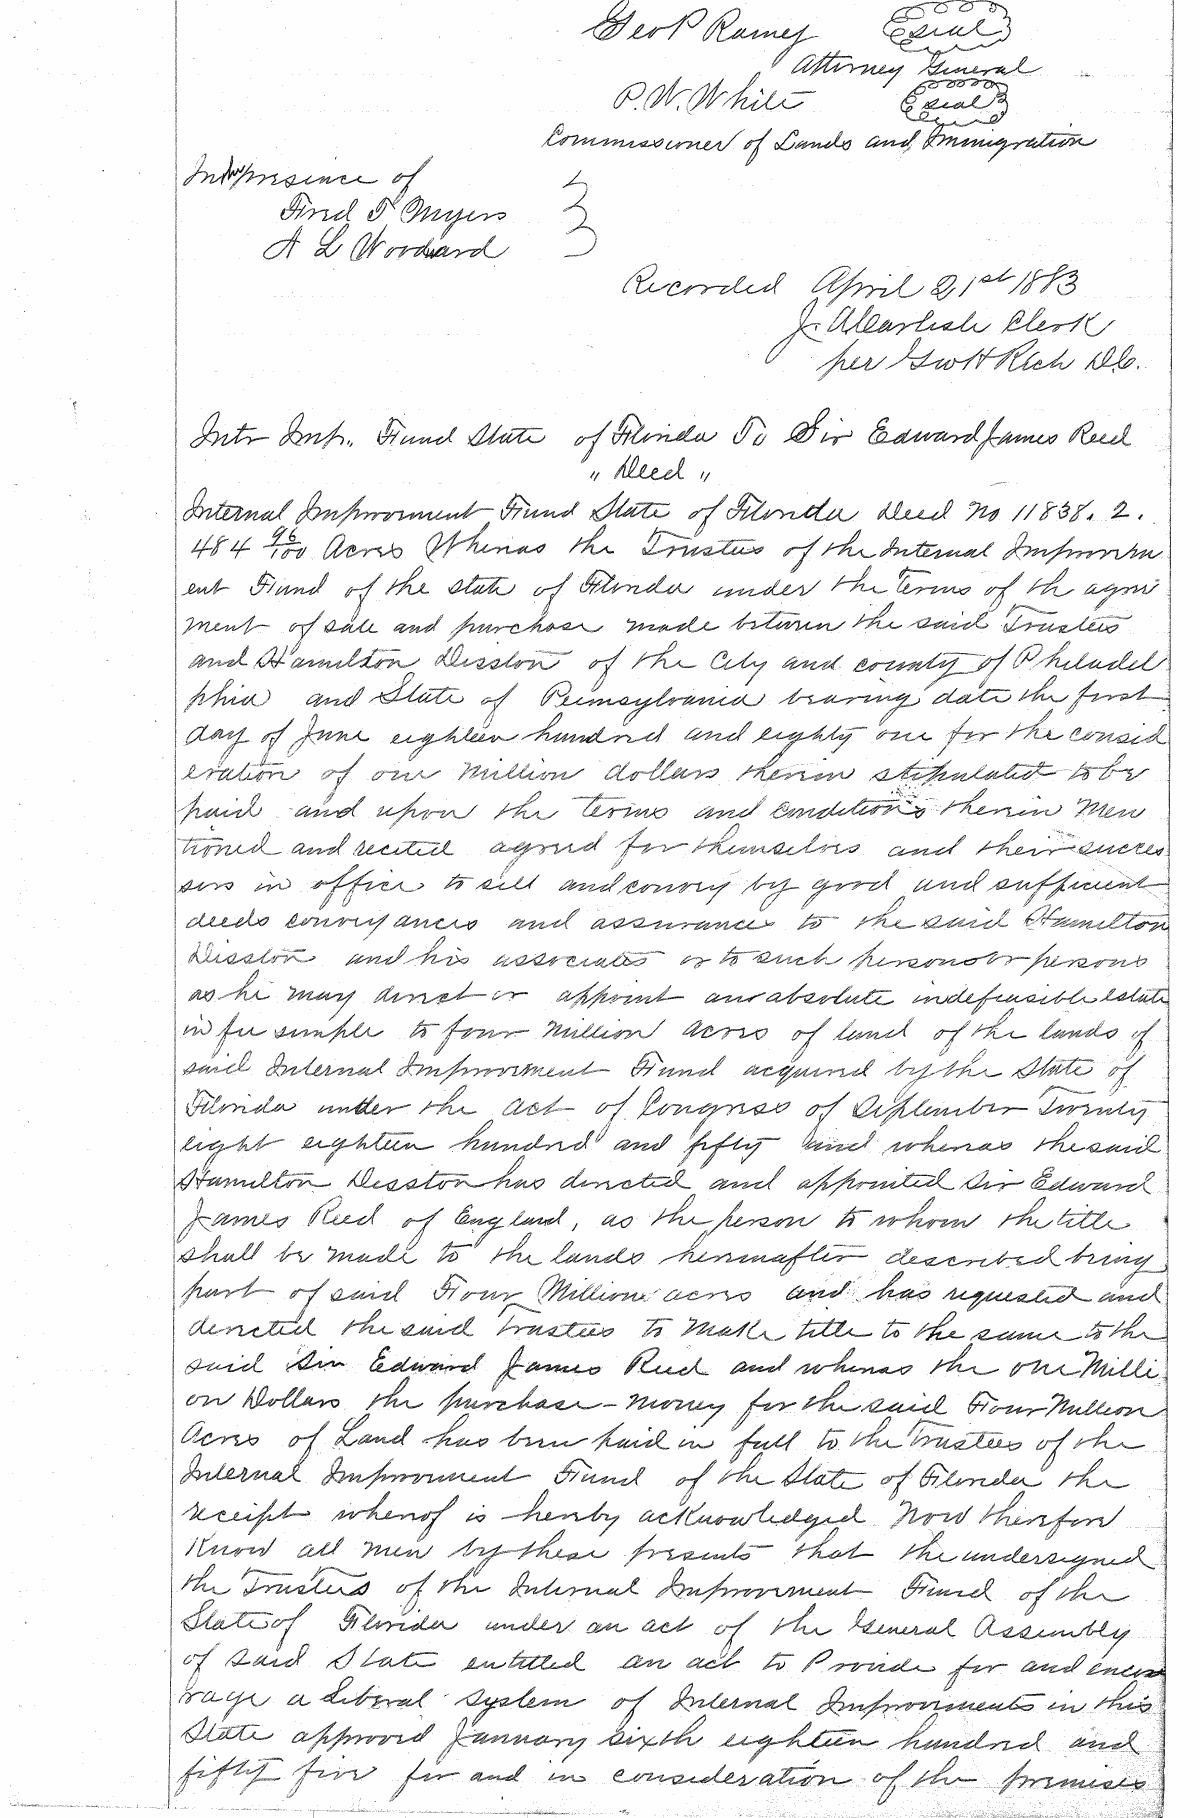 Geo P Raney (seal)
Attorney General
P. W. White (seal)
Commissioner of Lands and Immigration
In presence of
Fred T Myers
A L Woodward
Recorded April 21st 1883
J. A Carlisle Clerk
per Geo H Rich D.C.
Intr Imp. Fund State of Florida To Sir Edward James Reed
" Deed "
Internal Improvment Fund State of Florida Deed No 11838. 2.
484 96/100 Acres Whereas the Trustees of the Internal Improvem
ent Fund of the state of Florida under the terms of the agree
ment of sale and purchase made between the said Trustees
and Hamilton Disston of the City and county of Philadel
phia and State of Pennsylvania bearing date the first
day of June eighteen hundred and eighty one for the consid
eration of one Million dollars therein stipulated to be
paid and upon the terms and conditions therein Men
tioned and recited agreed for themselves and their succes
sors in office to sell and convey by good and sufficient
deeds conveyances and assurances to the said Hamilton
Disston and his associates or to such person or persons
as he may direct or appoint an absolute indefeasible Estate
in fee simple to four Million acres of land of the lands of
said Internal Improvement Fund acquired by the State of
Florida under the Act of Congress of September Twenty
eight eighteen hundred and fifty and whereas the said
Hamilton Disston has directed and appointed Sir Edward
James Reed of England, as the person to whom the title
shall be made to the lands hereinafter described being
part of said Four Million acres and has requested and
directed the said Trustees to Make title to the same to the
said Sir Edward James Reed and whereas the one Milli
on Dollars the purchase-money for the said Four Million
Acres of Land has been paid in full to the Trustees of the
Internal Improvment Fund of the State of Florida the
receipt whereof is hereby acknowledged Now therefore
Know all men by these presents that the undersigned
the Trustees of the Internal Improvement Fund of the
State of Florida under an act of the General Assembly
of said State entitled an act to Provide for and encou
rage a Liberal system of Internal Improvements in this
State approved January sixth eighteen hundred and
fifty five for and in consideration of the premises